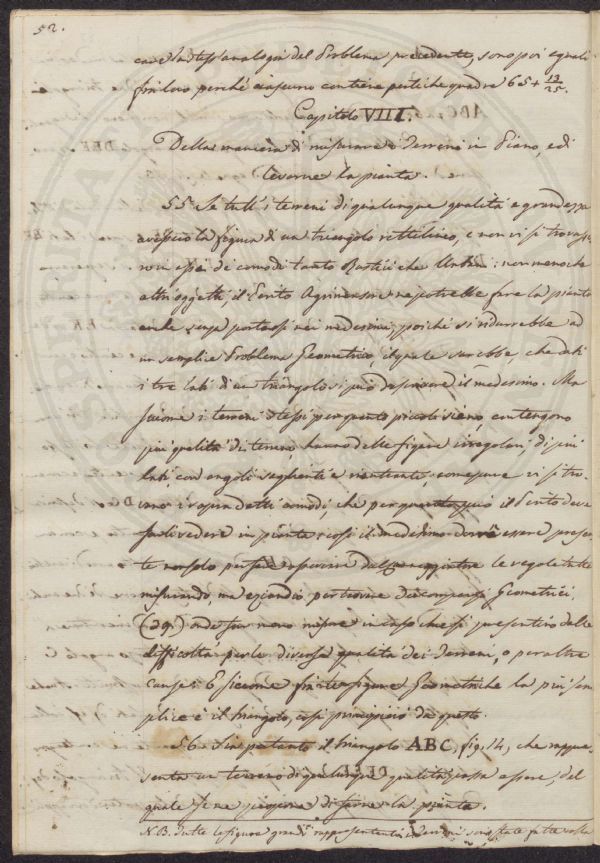 52.
cave la stess'analogia del Problema precedente, sono poi eguali
fra loro perché ciascuno contiene pertiche quadre 65 + 13/25.
Capitolo VIII.
Della maniera di misurare i Terreni in Piano, e di
levarne la pianta.
55 Se tutt'i terreni di qualunque qualità e grandezza
avessero la figura di un triangolo rettilineo, e non vi si trovasse-
ro in essi dei comodi tanto Rustici che Urbani: non meno che
altri oggetti, il Perito Agrimensore ne potrebbe fare la pianta
anche senza portarsi nei medesimi, poiché si ridurrebbe ad
un semplice Problema Geometrico, il quale sarebbe, che dati
i tre lati di un triangolo si può descrivere il medesimo. Ma
siccome i terreni stessi per quanto piccoli sieno, contengono
più qualità di terreno, hanno delle figure irregolari, di più
lati, con angoli saglienti e rientranti, come pure vi si tro-
vano i sopradetti comodi, che per quanto può il Perito deve
farli vedere in pianta: così il medesimo dovrà essere presen-
te non solo per far eseguire dal le regole tutte
misurando, ma eziandio per trovare dei compensi Geometrici
(29.) onde far meno misure in caso che si presentino delle
difficoltà per le diverse qualità dei Terreni, o per altre
cause. E siccome fra le figure Geometriche la più sem-
plice è il triangolo, così principierò da questo.
56. Sia pertanto il triangolo ABC, fig. 14, che rappre-
senta un terreno di qualunque qualità possa essere, del
quale se ne proponga di farne la pianta.
N.B. Tutte le figure grandi rappresentanti i Terreni sono state fatte colla